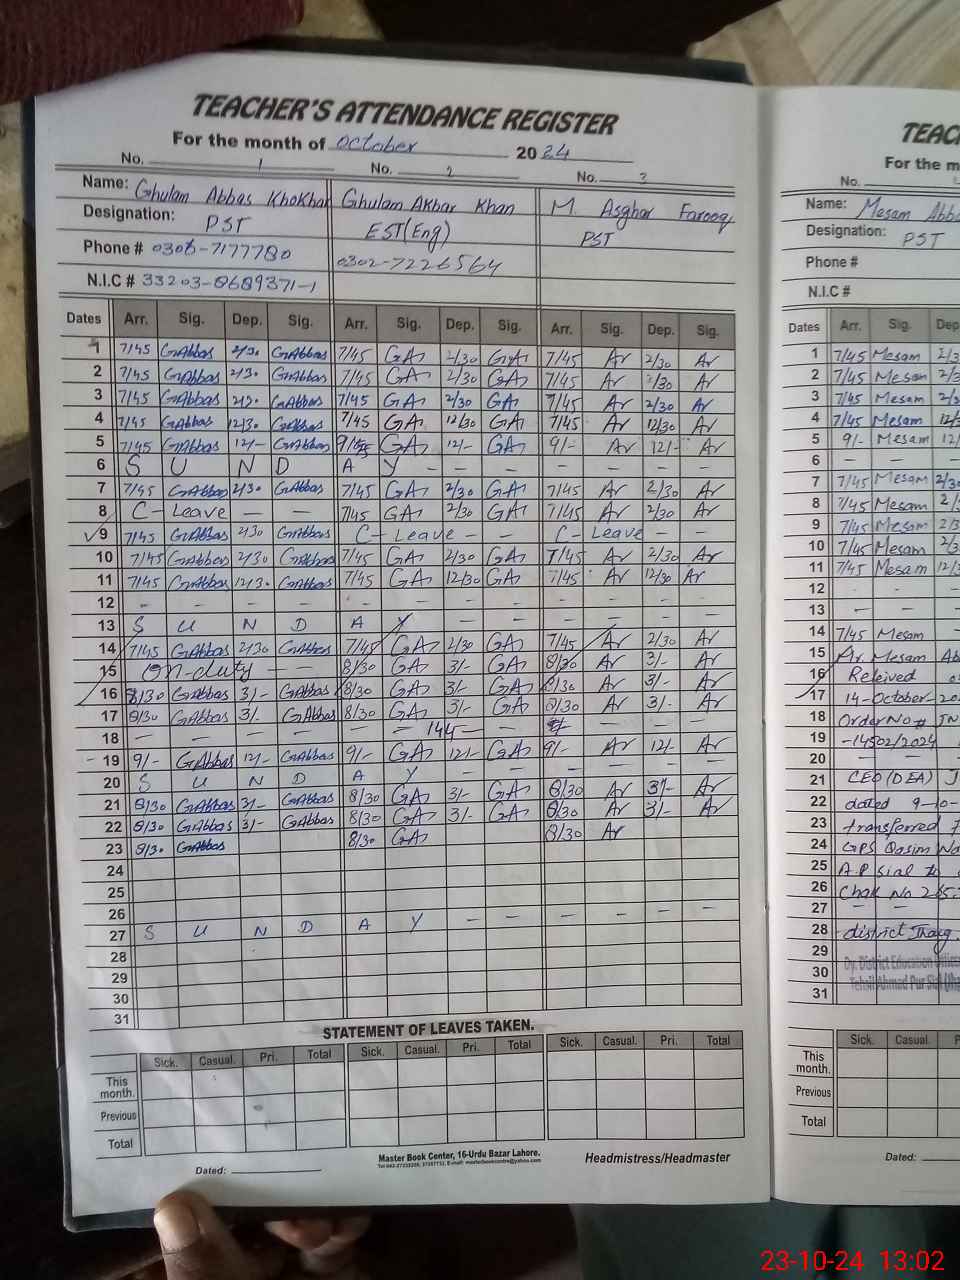 TEACHER'S ATTENDANCE REGISTER
For the month of October 2024
No. 1 No. 2 No. 3
Name: Ghulam Abbas Khokhar Ghulam Akbar Khan M. Asghar Farooq
Designation: PST EST(Eng) PST
Phone # 0306-7177780 0302-7226564
N.I.C # 33203-8689371-1
Dates Arr. Sig. Dep. Sig. Arr. Sig. Dep. Sig. Arr. Sig. Dep. Sig.
1 7/45 GAbbas 2/30 GAbbas 7/45 GA 2/30 GA 7/45 Ar 2/30 Ar
2 7/45 GAbbas 2/30 GAbbas 7/45 GA 2/30 GA 7/45 Ar 2/30 Ar
3 7/45 GAbbas 2/30 GAbbas 7/45 GA 2/30 GA 7/45 Ar 2/30 Ar
4 7/45 GAbbas 12/30 GAbbas 7/45 GA 12/30 GA 7/45 Ar 12/30 Ar
5 7/45 GAbbas 12/- GAbbas GA 12/- GA 9/- Ar 12/- Ar
6 S U N D A Y - - - - - -
7 7/45 GAbbas 2/30 GAbbas 7/45 GA 2/30 GA 7/45 Ar 2/30 Ar
8 C-Leave - - 7/45 GA 2/30 GA 7/45 Ar 2/30 Ar
9 7/45 GAbbas 2/30 GAbbas C-Leave - - C-Leave - -
10 7/45 GAbbas 2/30 GAbbas 7/45 GA 2/30 GA 7/45 Ar 2/30 Ar
11 7/45 GAbbas 12/30 GAbbas 7/45 GA 12/30 GA 7/45 Ar 12/30 Ar
12 - - - - - - - - - - - -
13 S U N D A Y - - - - - -
14 7/45 GAbbas 2/30 GAbbas 7/45 GA 2/30 GA 7/45 Ar 2/30 Ar
15 On-duty - 8/30 GA 3/- GA 8/30 Ar 3/- Ar
16 8/30 GAbbas 3/- GAbbas 8/30 GA 3/- GA 8/30 Ar 3/- Ar
17 8/30 GAbbas 3/- GAbbas 8/30 GA 3/- GA 8/30 Ar 3/- Ar
18 - - - - - - 144 - - - - -
19 9/- GAbbas 12/- GAbbas 9/- GA 12/- GA 9/- Ar 12/- Ar
20 S U N D A Y - - - - - -
21 8/30 GAbbas 3/- GAbbas 8/30 GA 3/- GA 8/30 Ar 3/- Ar
22 8/30 GAbbas 3/- GAbbas 8/30 GA 3/- GA 8/30 Ar 3/- Ar
23 8/30 GAbbas 8/30 GA 8/30 Ar
24
25
26
27 S U N D A Y - - - - - -
28
29
30
31
STATEMENT OF LEAVES TAKEN.
Sick. Casual. Pri. Total Sick. Casual. Pri. Total Sick. Casual. Pri. Total
This month.
Previous
Total
Dated:
Master Book Center, 16-Urdu Bazar Lahore.
Headmistress/Headmaster
TEAC
For the m
No.
Name: Mesam Abba
Designation: PST
Phone #
N.I.C #
Dates Arr. Sig. Dep
1 7/45 Mesam 2/3
2 7/45 Mesam 2/3
3 7/45 Mesam 2/3
4 7/45 Mesam 12/3
5 9/- Mesam 12/
6 - - -
7 7/45 Mesam 2/30
8 7/45 Mesam 2/3
9 7/45 Mesam 2/3
10 7/45 Mesam 2/3
11 7/45 Mesam 12/3
12 - -
13 - -
14 7/45 Mesam
15 Mr. Mesam Ab
16 Relieved
17 14-October-20
18 Order No #
19 -14502/2024
20 - - -
21 CEO (DEA) J
22 dated 9-10-
23 transferred
24 GPS Qasim
25 A.P sial to
26 Chak No
27 - -
28 district Jhang.
29 Dy. District Education Officer
30 Tehsil Ahmad Pur Sial
31
Sick. Casual. P
This month.
Previous
Total
Dated:
23-10-24 13:02